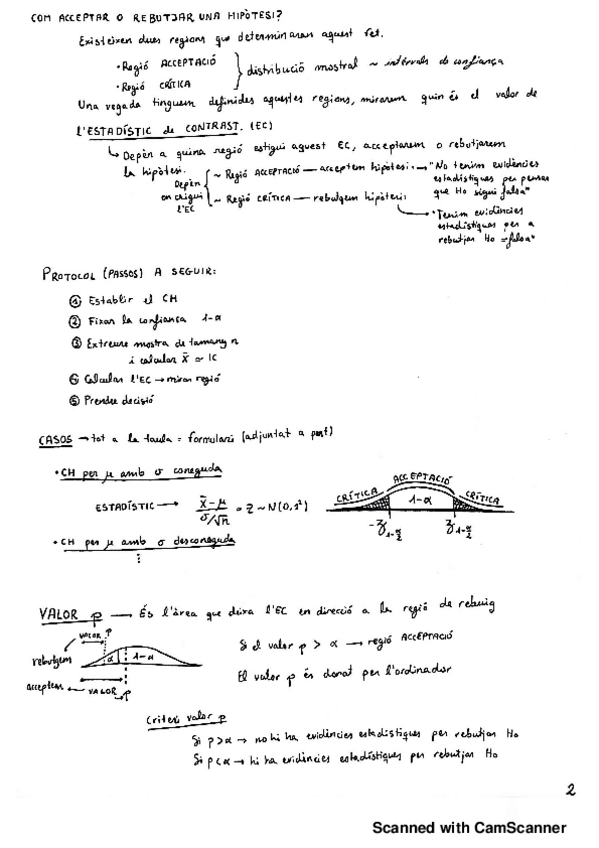 COM ACCEPTAR O REBUTJAR UNA HIPÒTESI?
Existeixen dues regions que determinaran aquest fet.
• Regió ACCEPTACIÓ
• Regió CRÍTICA
} distribució mostral ~ intervals de confiança
Una vegada tinguem definides aquestes regions, mirarem quin és el valor de
l'ESTADÍSTIC de CONTRAST. (EC)
↳ Depèn a quina regió estigui aquest EC, acceptarem o rebutjarem
la hipòtesi.
Depèn
on caigui
l'EC
~ Regió ACCEPTACIÓ — acceptem hipòtesi → "No tenim evidències
estadístiques per pensar
que Ho sigui falsa"
~ Regió CRÍTICA — rebutgem hipòtesi
→ "Tenim evidències
estadístiques per a
rebutjar Ho = falsa"
PROTOCOL (PASSOS) A SEGUIR:
① Establir el CH
② Fixar la confiança 1-α
③ Extreure mostra de tamany n
i calcular x̄ o IC
④ Calcular l'EC → mirar regió
⑤ Prendre decisió
CASOS → tot a la taula = formulari (adjuntat a part)
• CH per μ amb σ coneguda
ESTADÍSTIC → (x̄-μ)/(σ/√n) = Z ~ N(0,1²)
CRÍTICA ACCEPTACIÓ CRÍTICA
1-α
-z 1-α/2 z 1-α/2
• CH per μ amb σ desconeguda
⋮
VALOR p — És l'àrea que deixa l'EC en direcció a la regió de rebuig
VALOR p
rebutgem
α 1-α
acceptem ← VALOR p
Si el valor p > α → regió ACCEPTACIÓ
El valor p és donat per l'ordinador
Criteri valor p
Si p>α → no hi ha evidències estadístiques per rebutjar Ho
Si p<α → hi ha evidències estadístiques per rebutjar Ho
2
Scanned with CamScanner